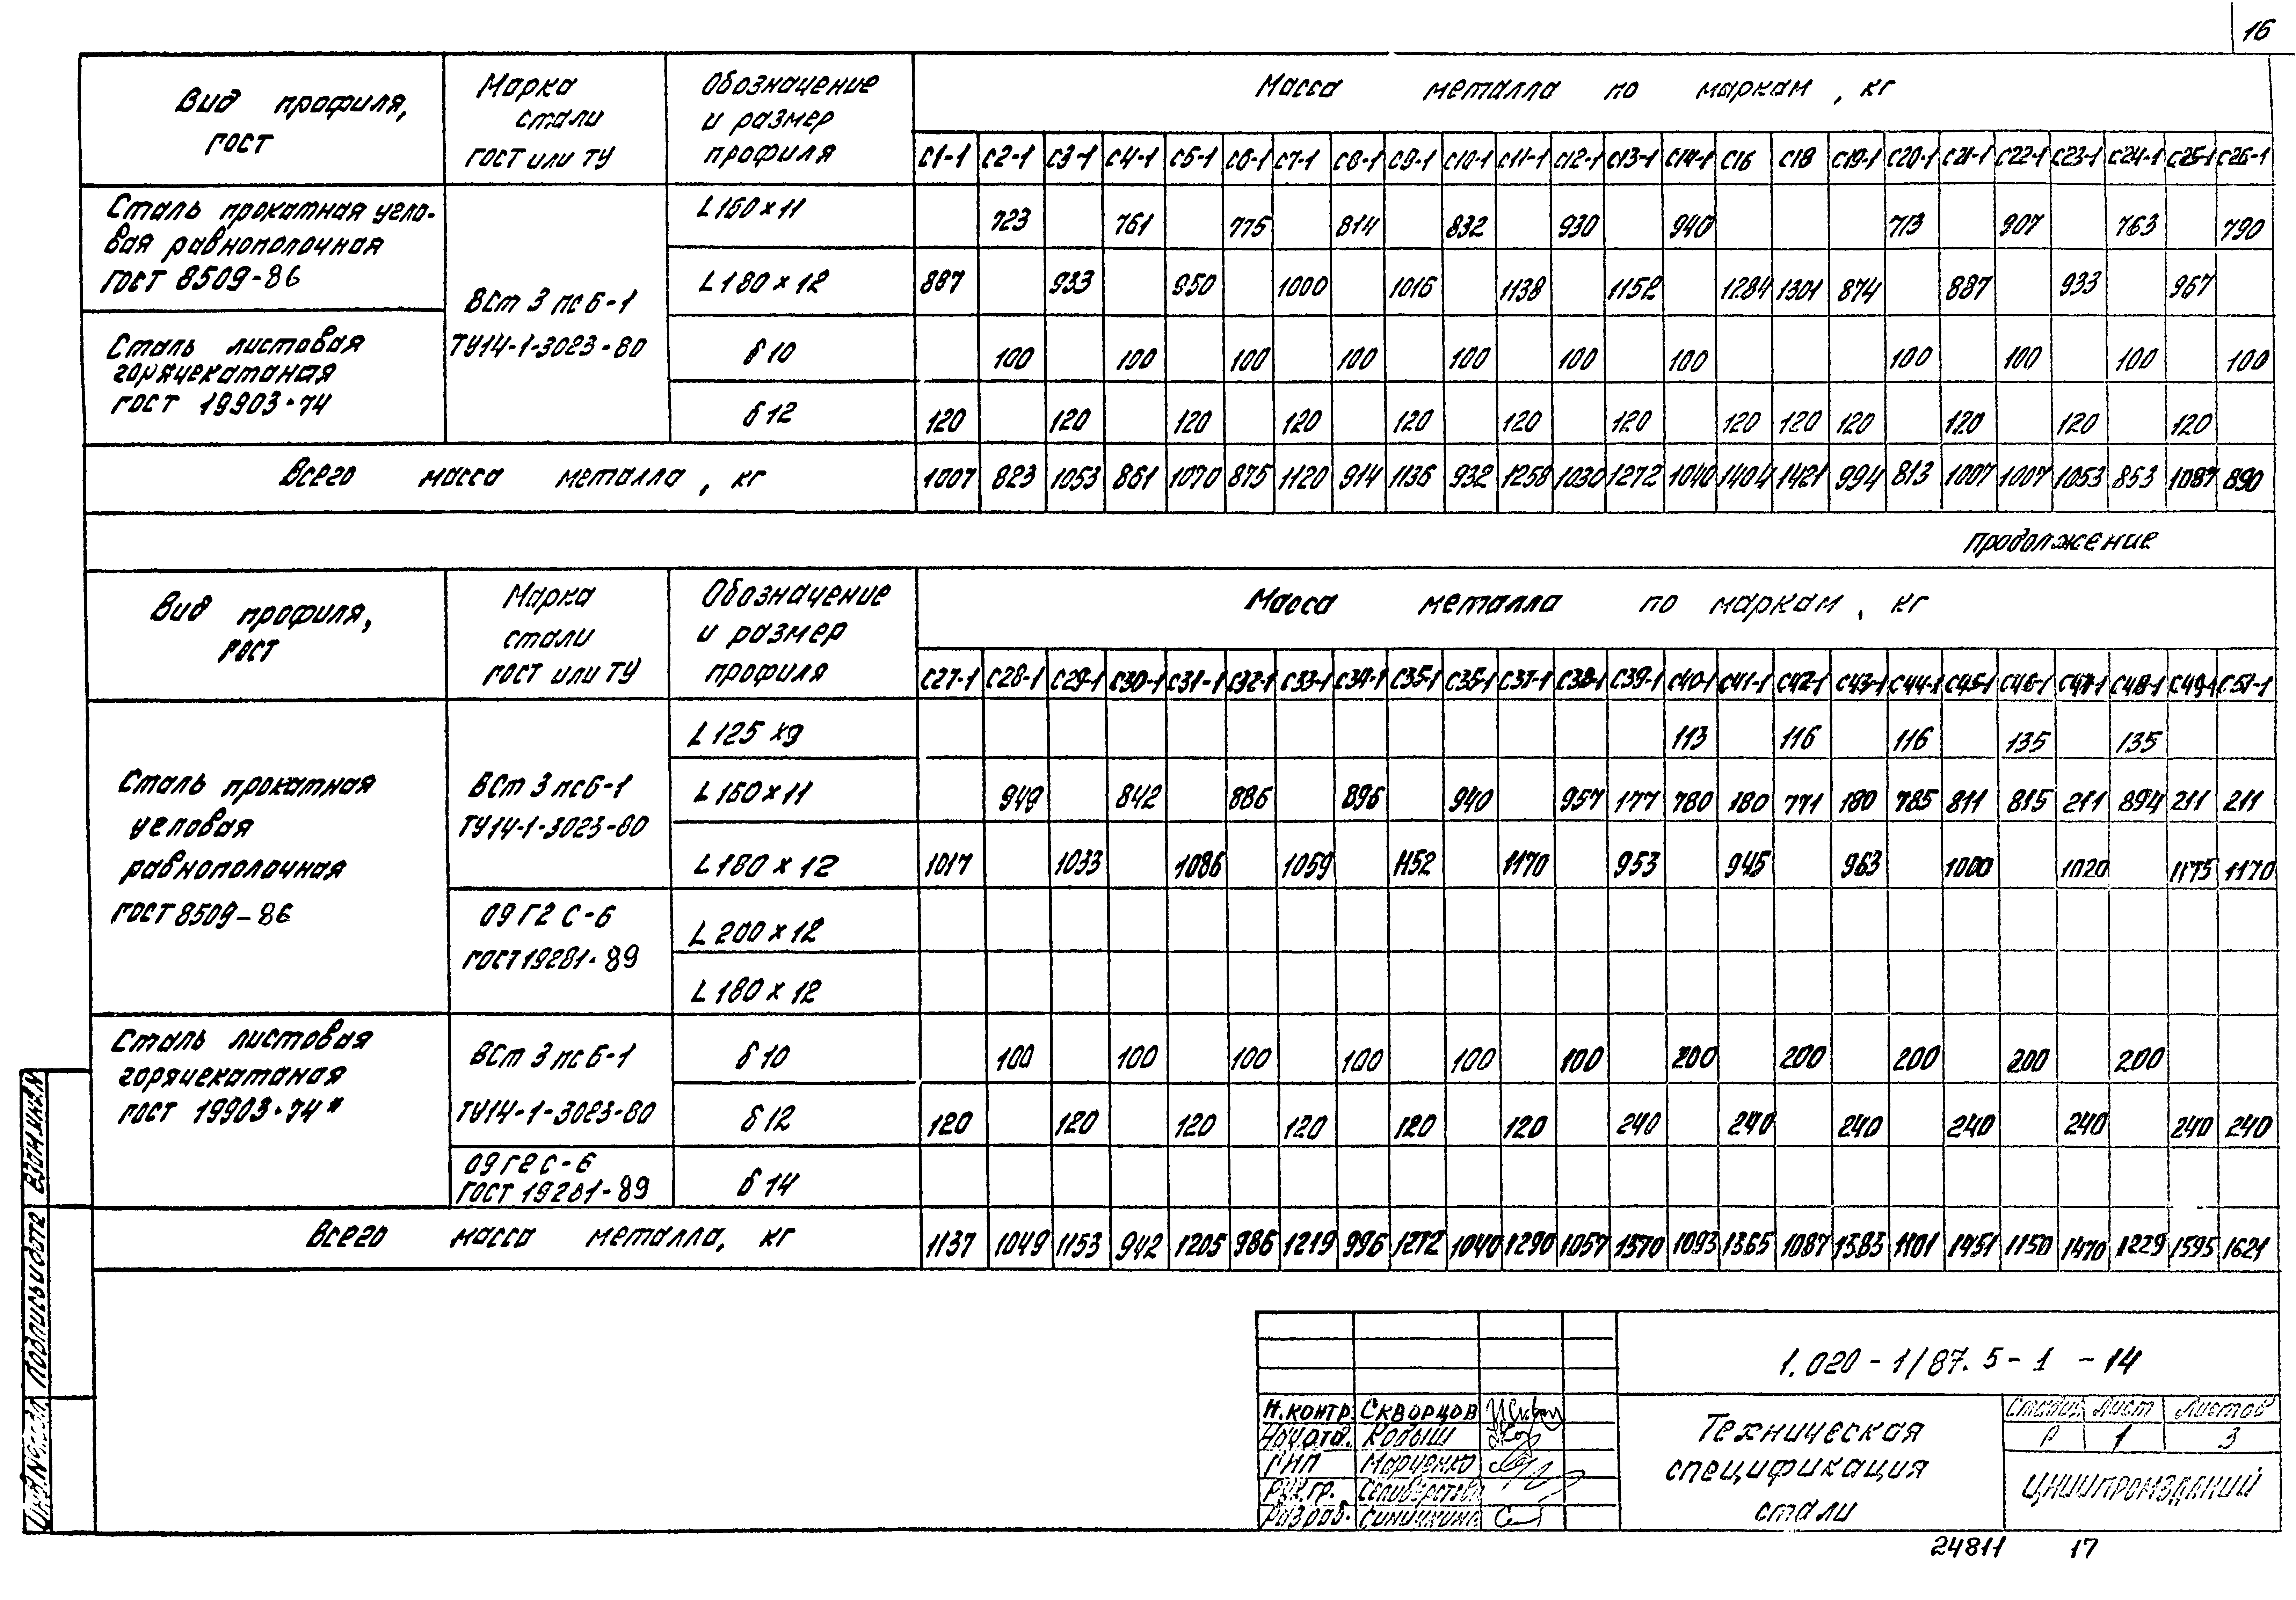 16
Вид профиля, ГОСТ
Марка стали ГОСТ или ТУ
Обозначение и размер профиля
Масса металла по маркам, кг
С1-1 С2-1 С3-1 С4-1 С5-1 С6-1 С7-1 С8-1 С9-1 С10-1 С11-1 С12-1 С13-1 С14-1 С16 С18 С19-1 С20-1 С21-1 С22-1 С23-1 С24-1 С25-1 С26-1
Сталь прокатная угло-
вая равнополочная
ГОСТ 8509-86
ВСт 3 пс 6-1
ТУ14-1-3023-80
L 160 х 11 723 761 775 814 832 930 940 713 907 763 790
L 180 х 12 887 933 950 1000 1016 1138 1152 1284 1301 874 887 933 967
Сталь листовая
горячекатаная
ГОСТ 19903-74
δ 10 100 100 100 100 100 100 100 100 100 100 100
δ 12 120 120 120 120 120 120 120 120 120 120 120 120 120
Всего масса металла, кг 1007 823 1053 861 1070 875 1120 914 1136 932 1258 1030 1272 1040 1404 1421 994 813 1007 1007 1053 853 1087 890
продолжение
Вид профиля, ГОСТ
Марка стали ГОСТ или ТУ
Обозначение и размер профиля
Масса металла по маркам, кг
С27-1 С28-1 С29-1 С30-1 С31-1 С32-1 С33-1 С34-1 С35-1 С35-1 С37-1 С38-1 С39-1 С40-1 С41-1 С42-1 С43-1 С44-1 С45-1 С46-1 С47-1 С48-1 С49-1 С51-1
Сталь прокатная
угловая
равнополочная
ГОСТ 8509-86
ВСт 3 пс 6-1
ТУ14-1-3023-80
L 125 х 9 113 116 116 135 135
L 160 х 11 949 842 886 896 940 957 177 780 180 771 180 785 811 815 211 894 211 211
L 180 х 12 1017 1033 1086 1059 1152 1170 953 945 963 1000 1020 1175 1170
09Г2С-6
ГОСТ 19281-89
L 200 х 12
L 180 х 12
Сталь листовая
горячекатаная
ГОСТ 19903-74*
ВСт 3 пс 6-1
ТУ14-1-3023-80
δ 10 100 100 100 100 100 100 200 200 200 200 200
δ 12 120 120 120 120 120 120 240 240 240 240 240 240 240
09Г2С-6
ГОСТ 19281-89
δ 14
Всего масса металла, кг 1137 1049 1153 942 1205 986 1219 996 1272 1040 1290 1057 1370 1093 1365 1087 1383 1101 1451 1150 1470 1229 1595 1621
1.020-1/87.5-1 -14
Н.контр. Скворцов
Нач.отд. Кодыш
ГИП Марченко
Рук.гр. Селиверстова
Разраб. Синичкина
Техническая
спецификация
стали
Стадия Лист Листов
Р 1 3
ЦНИИПРОМЗДАНИЙ
24811 17
Инв.№подл. Подпись и дата Взам.инв.№